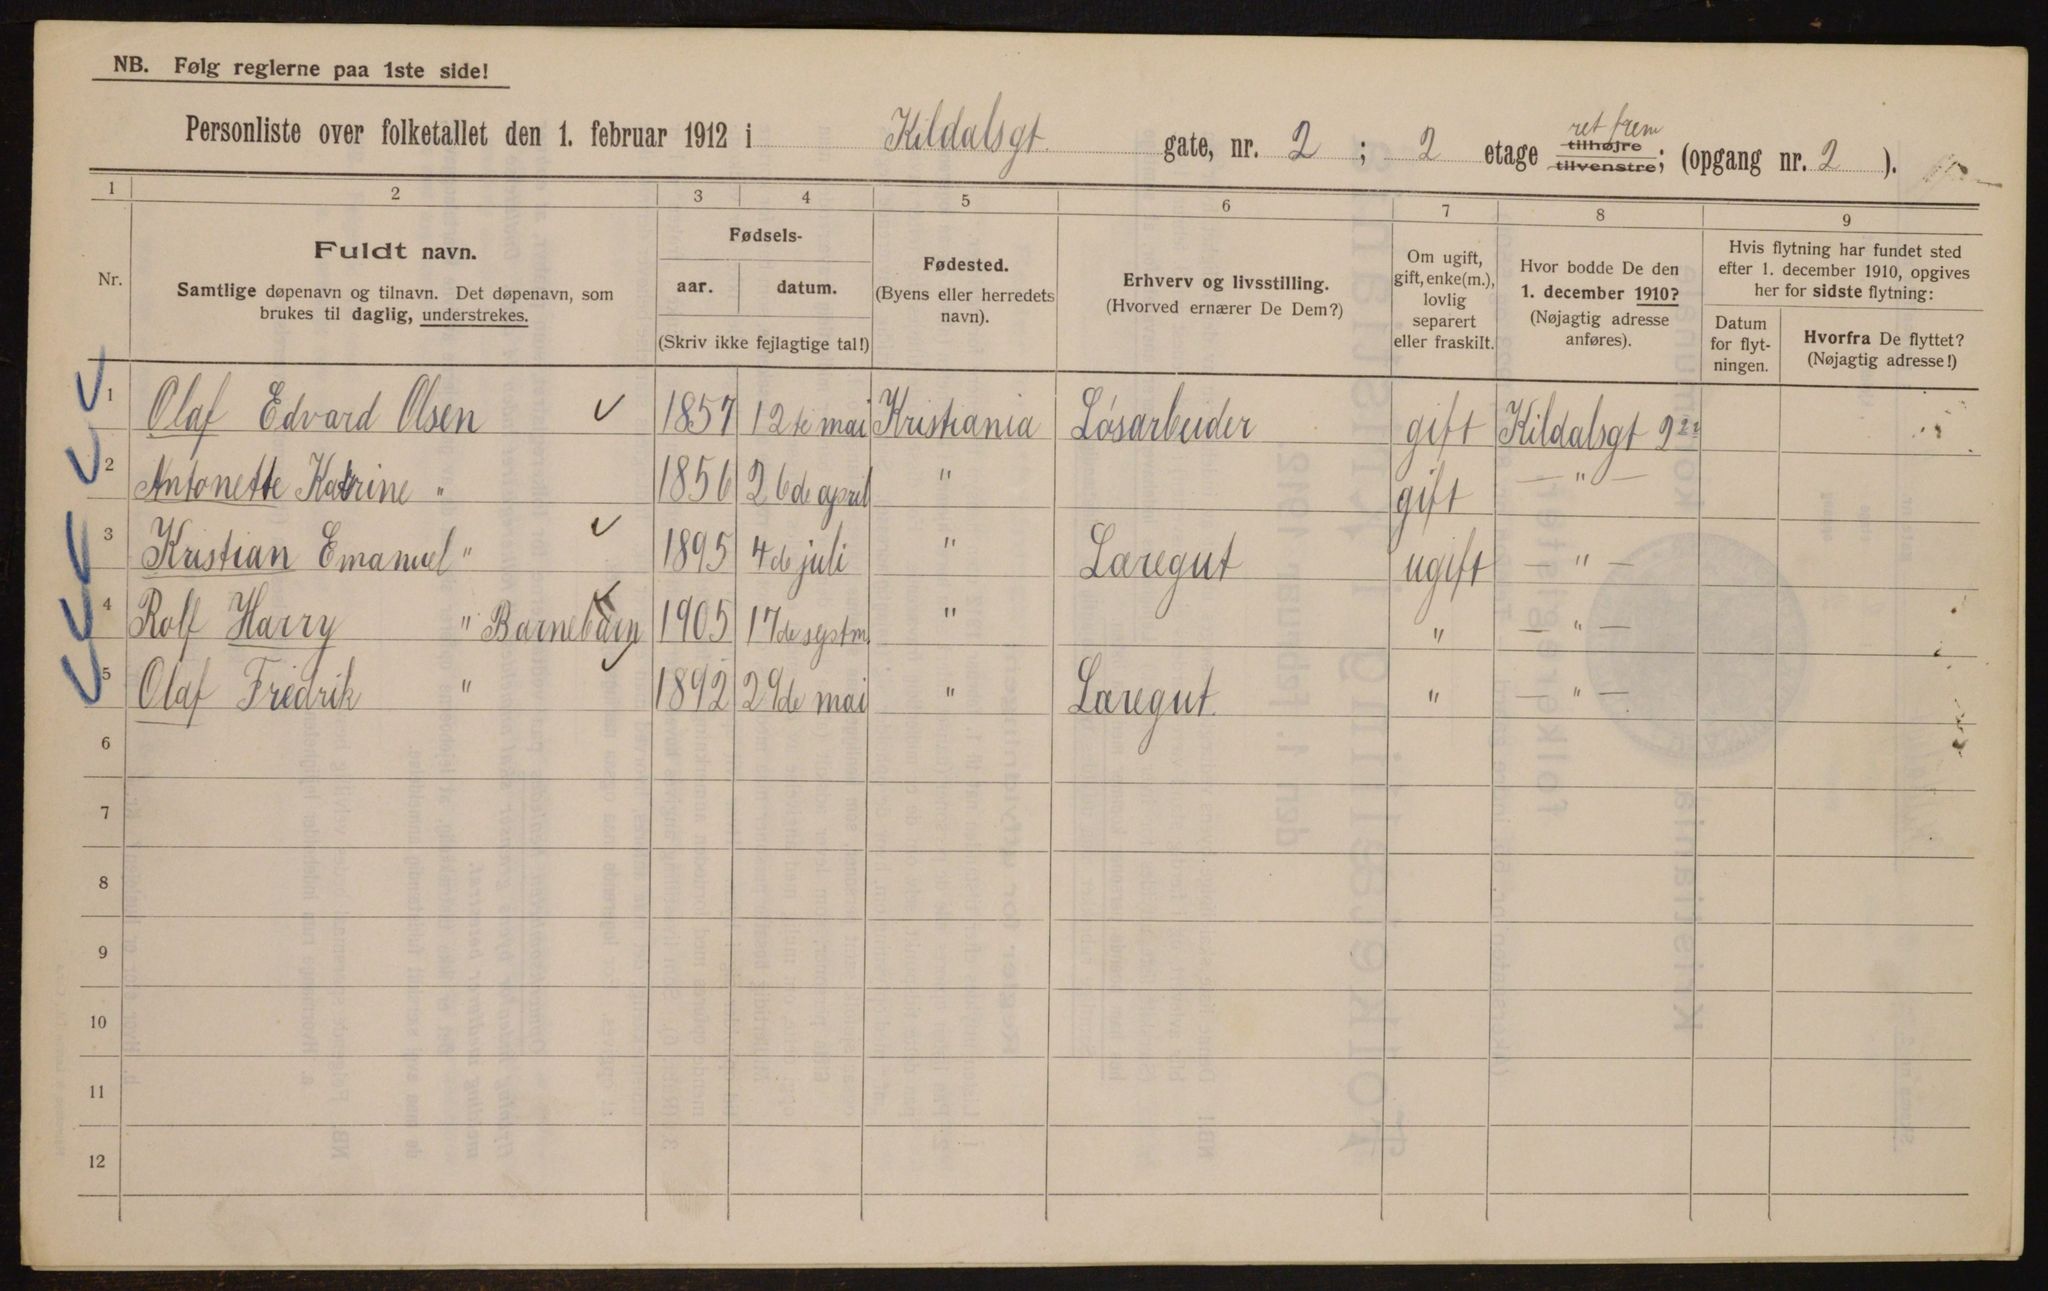 NB. Følg reglerne paa 1ste side!
Personliste over folketallet den 1. februar 1912 i Kildalsgt. gate, nr. 2 ; 2 etage ret frem tilhøjre tilvenstre; (opgang nr. 2 ).
1 2 3 4 5 6 7 8 9
Nr.
Fuldt navn.
Samtlige døpenavn og tilnavn. Det døpenavn, som
brukes til daglig, understrekes.
Fødsels-
aar. datum.
(Skriv ikke fejlagtige tal!)
Fødested.
(Byens eller herredets
navn).
Erhverv og livsstilling.
(Hvorved ernærer De Dem?)
Om ugift,
gift, enke(m.),
lovlig
separert
eller fraskilt.
Hvor bodde De den
1. december 1910?
(Nøjagtig adresse
anføres).
Hvis flytning har fundet sted
efter 1. december 1910, opgives
her for sidste flytning:
Datum
for flyt-
ningen.
Hvorfra De flyttet?
(Nøjagtig adresse!)
1 Olaf Edvard Olsen 1857 12te mai Kristiania Løsarbeider gift Kildalsgt 2
2 Antonette Katrine " 1856 26de april " gift — " —
3 Kristian Emanuel " 1895 4de juli " Læregut ugift — " —
4 Rolf Harry " Barnebarn 1905 17de septm. " " — " —
5 Olaf Fredrik " 1892 29de mai " Læregut. " — " —
6
7
8
9
10
11
12